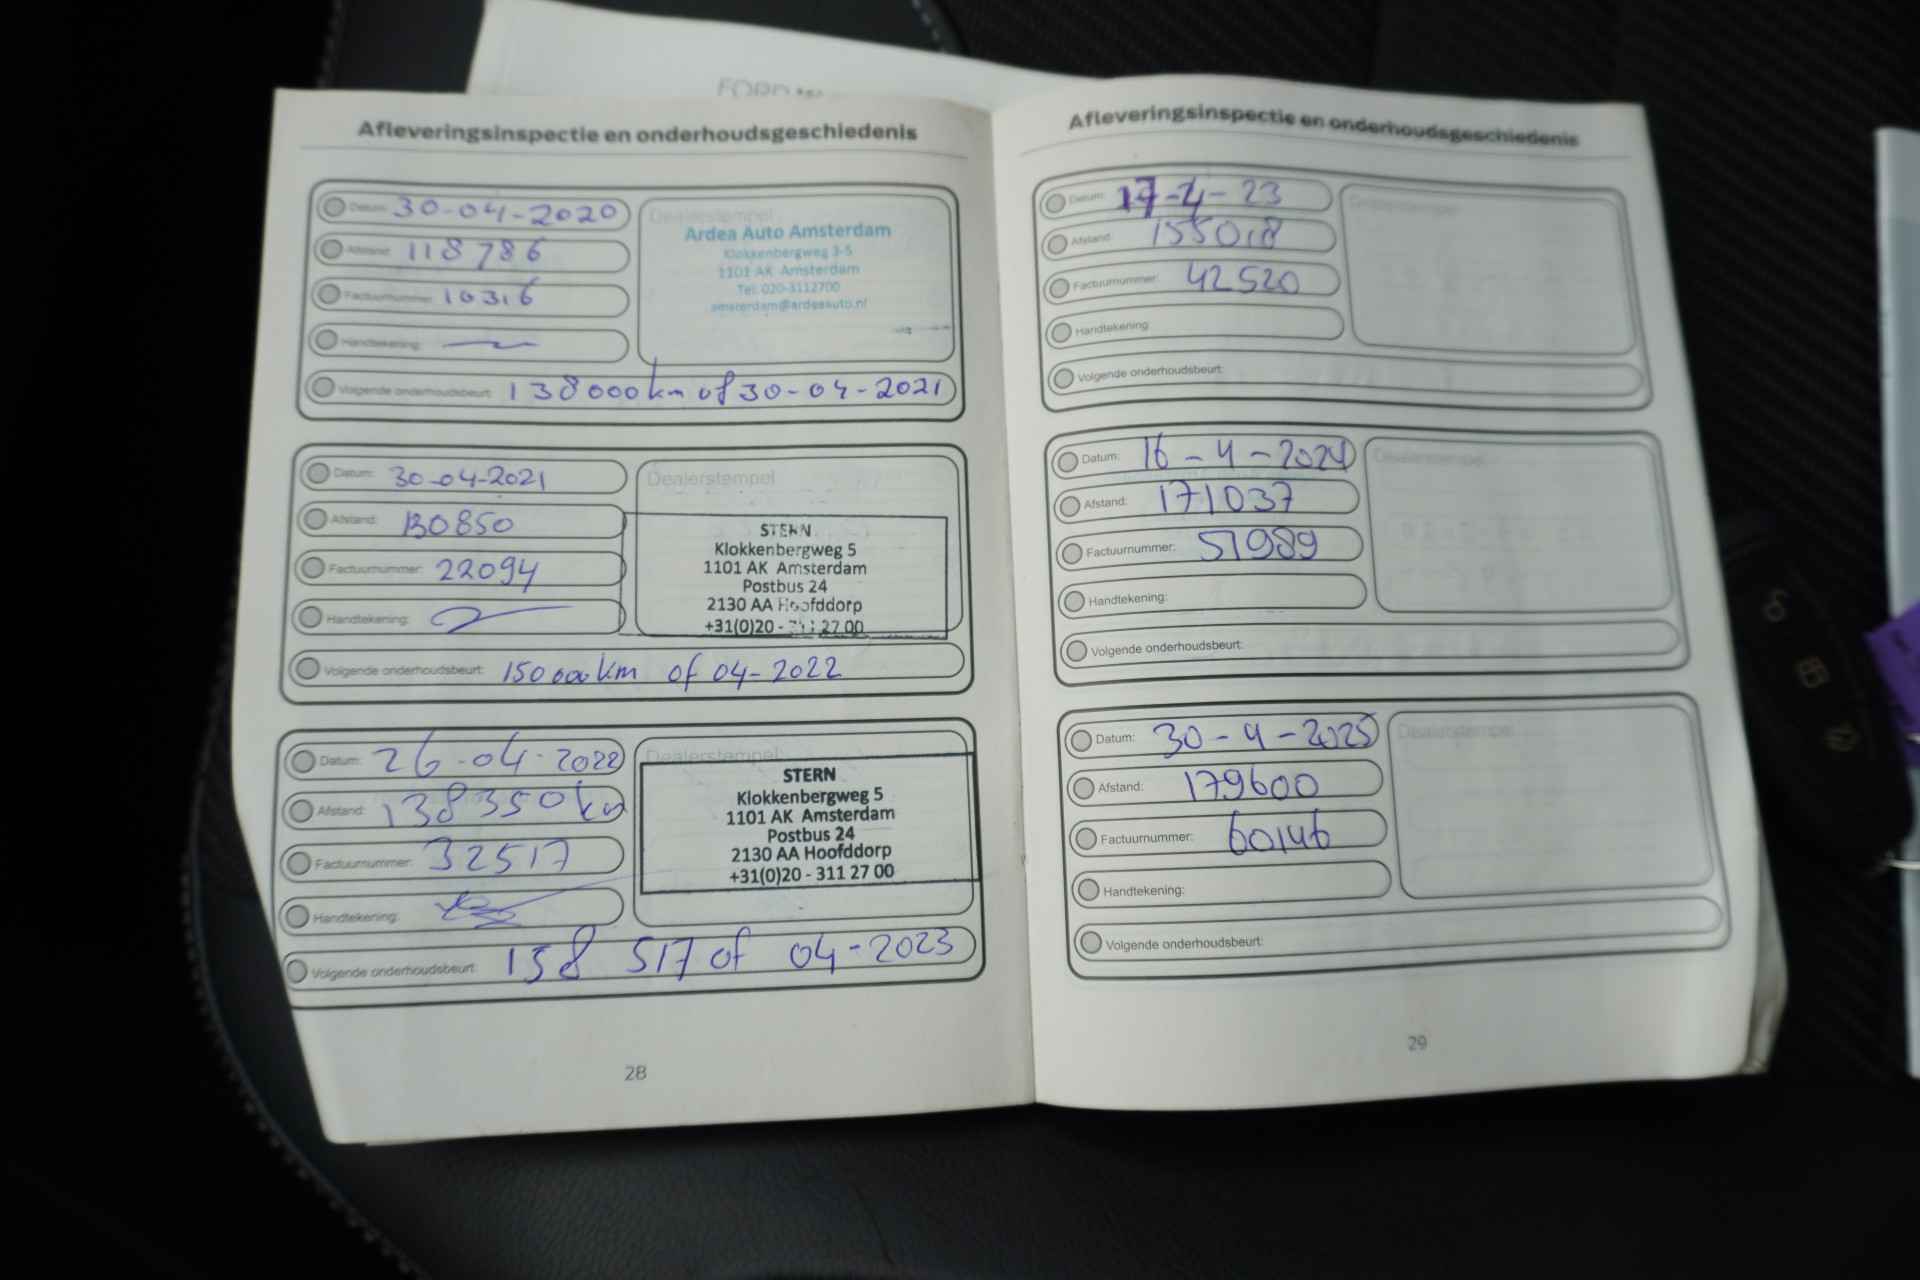 FORD
Afleveringsinspectie en onderhoudsgeschiedenis
Datum: 30-04-2020
Afstand: 118786
Factuurnummer: 10316
Handtekening:
Volgende onderhoudsbeurt: 138000km of 30-04-2021
Dealerstempel
Ardea Auto Amsterdam
Klokkenbergweg 3-5
1101 AK Amsterdam
Tel. 020-3112700
amsterdam@ardeaauto.nl
Datum: 30-04-2021
Afstand: 130850
Factuurnummer: 22094
Handtekening:
Volgende onderhoudsbeurt: 150000km of 04-2022
Dealerstempel
STERN
Klokkenbergweg 5
1101 AK Amsterdam
Postbus 24
2130 AA Hoofddorp
+31(0)20 - 311 27 00
Datum: 26-04-2022
Afstand: 138350km
Factuurnummer: 32517
Handtekening:
Volgende onderhoudsbeurt: 158 517 of 04-2023
Dealerstempel
STERN
Klokkenbergweg 5
1101 AK Amsterdam
Postbus 24
2130 AA Hoofddorp
+31(0)20 - 311 27 00
28
Afleveringsinspectie en onderhoudsgeschiedenis
Datum: 17-4-23
Afstand: 155018
Factuurnummer: 42520
Handtekening:
Volgende onderhoudsbeurt:
Dealerstempel
Datum: 16-4-2024
Afstand: 171037
Factuurnummer: 51989
Handtekening:
Volgende onderhoudsbeurt:
Dealerstempel
Datum: 30-4-2025
Afstand: 179600
Factuurnummer: 60146
Handtekening:
Volgende onderhoudsbeurt:
Dealerstempel
29